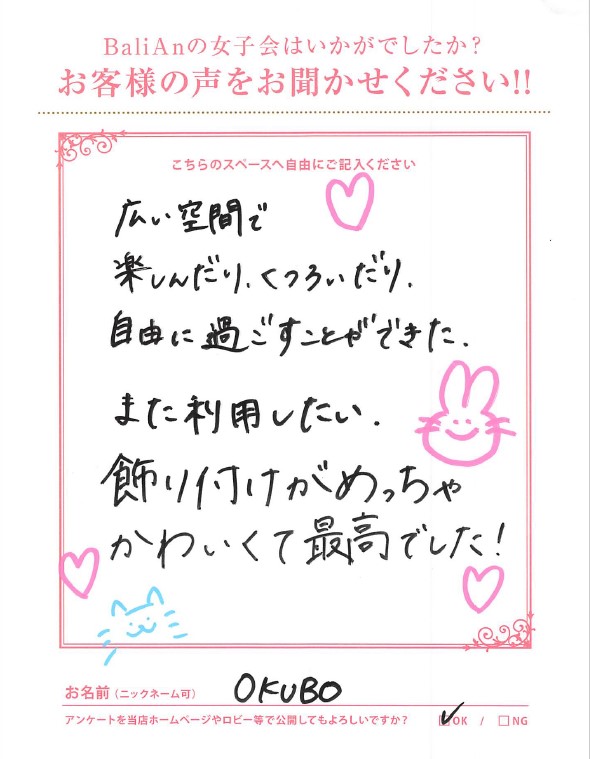 BaliAnの女子会はいかがでしたか？
お客様の声をお聞かせください!!
こちらのスペースへ自由にご記入ください
広い空間で
楽しんだり、くつろいだり、
自由に過ごすことができた。
また利用したい。
飾り付けがめっちゃ
かわいくて最高でした！
お名前（ニックネーム可） OKUBO
アンケートを当店ホームページやロビー等で公開してもよろしいですか？ ☑OK / □NG